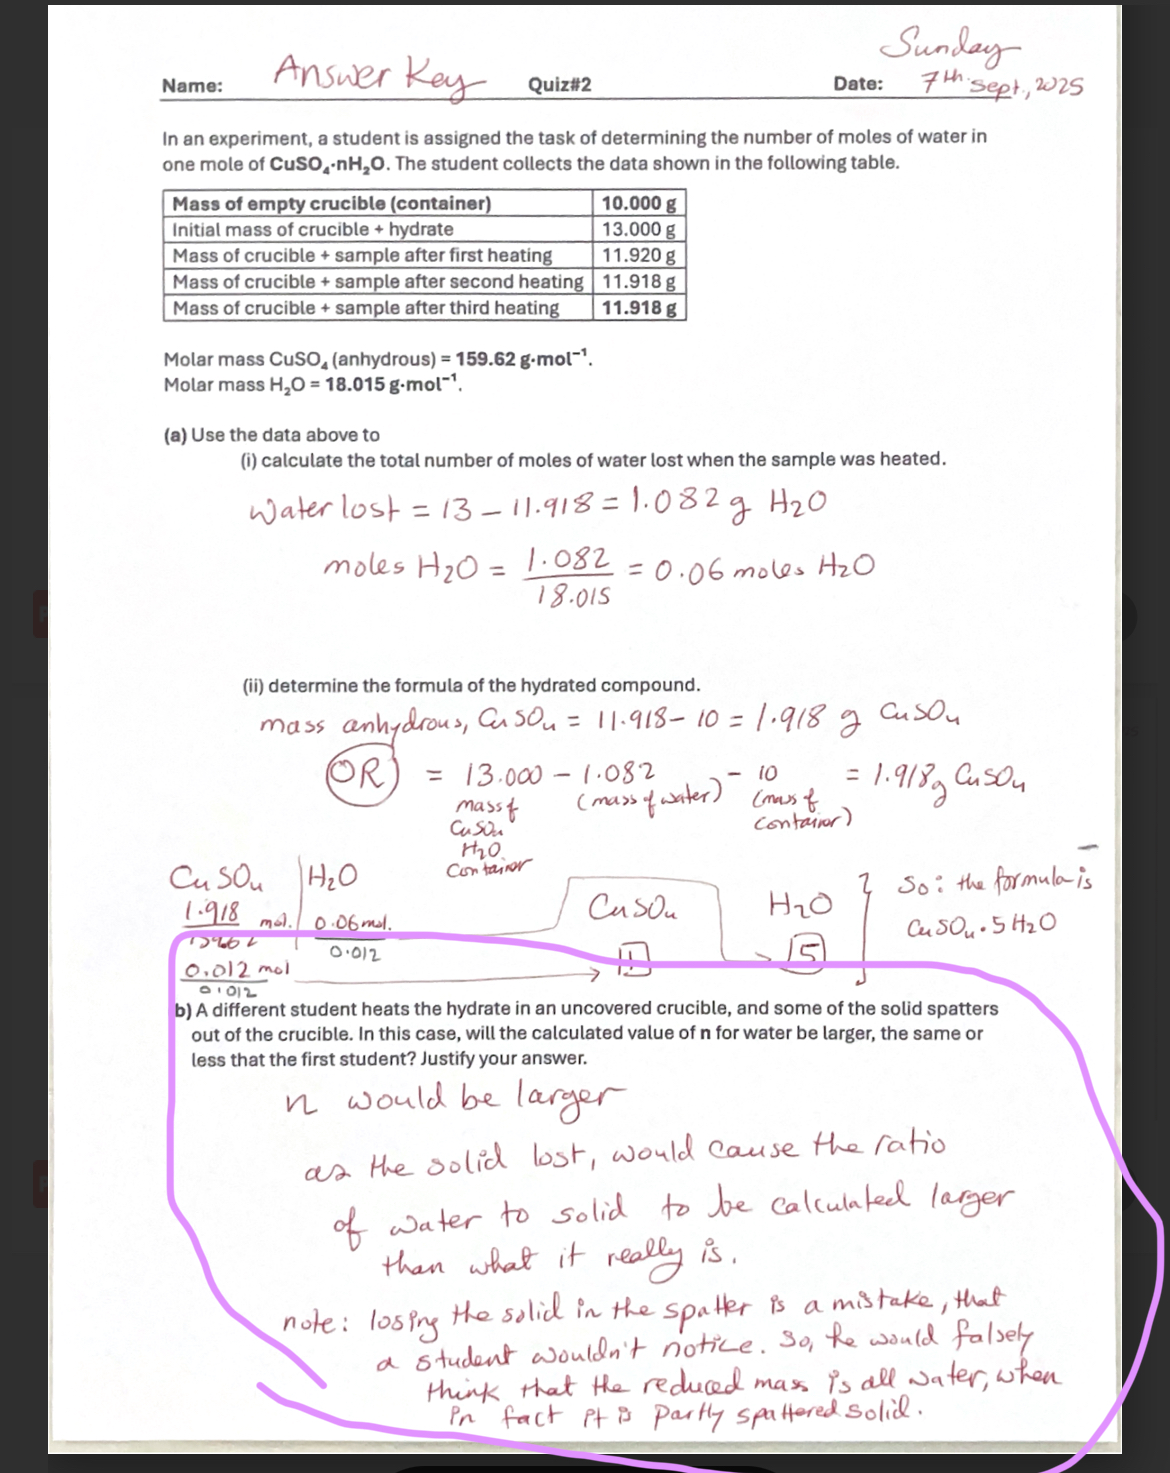 Sunday
Name: Answer Key Quiz#2 Date: 7th Sept., 2025
In an experiment, a student is assigned the task of determining the number of moles of water in
one mole of CuSO₄·nH₂O. The student collects the data shown in the following table.
Mass of empty crucible (container) 10.000 g
Initial mass of crucible + hydrate 13.000 g
Mass of crucible + sample after first heating 11.920 g
Mass of crucible + sample after second heating 11.918 g
Mass of crucible + sample after third heating 11.918 g
Molar mass CuSO₄ (anhydrous) = 159.62 g·mol⁻¹.
Molar mass H₂O = 18.015 g·mol⁻¹.
(a) Use the data above to
(i) calculate the total number of moles of water lost when the sample was heated.
Water lost = 13 – 11.918 = 1.082 g H₂O
moles H₂O = 1.082 / 18.015 = 0.06 moles H₂O
(ii) determine the formula of the hydrated compound.
mass anhydrous, CuSO₄ = 11.918 – 10 = 1.918 g CuSO₄
OR = 13.000 – 1.082 – 10 = 1.918g CuSO₄
mass of (mass of water) (mass of
CuSO₄ container)
H₂O
Container
CuSO₄ H₂O CuSO₄ H₂O So: the formula is
1.918 mol. 0.06 mol. CuSO₄·5H₂O
0.012 1 5
0.012 mol
0.012
b) A different student heats the hydrate in an uncovered crucible, and some of the solid spatters
out of the crucible. In this case, will the calculated value of n for water be larger, the same or
less that the first student? Justify your answer.
n would be larger
as the solid lost, would cause the ratio
of water to solid to be calculated larger
than what it really is.
note: losing the solid in the spatter is a mistake, that
a student wouldn't notice. So, he would falsely
think that the reduced mass is all water, when
in fact it is partly spattered solid.